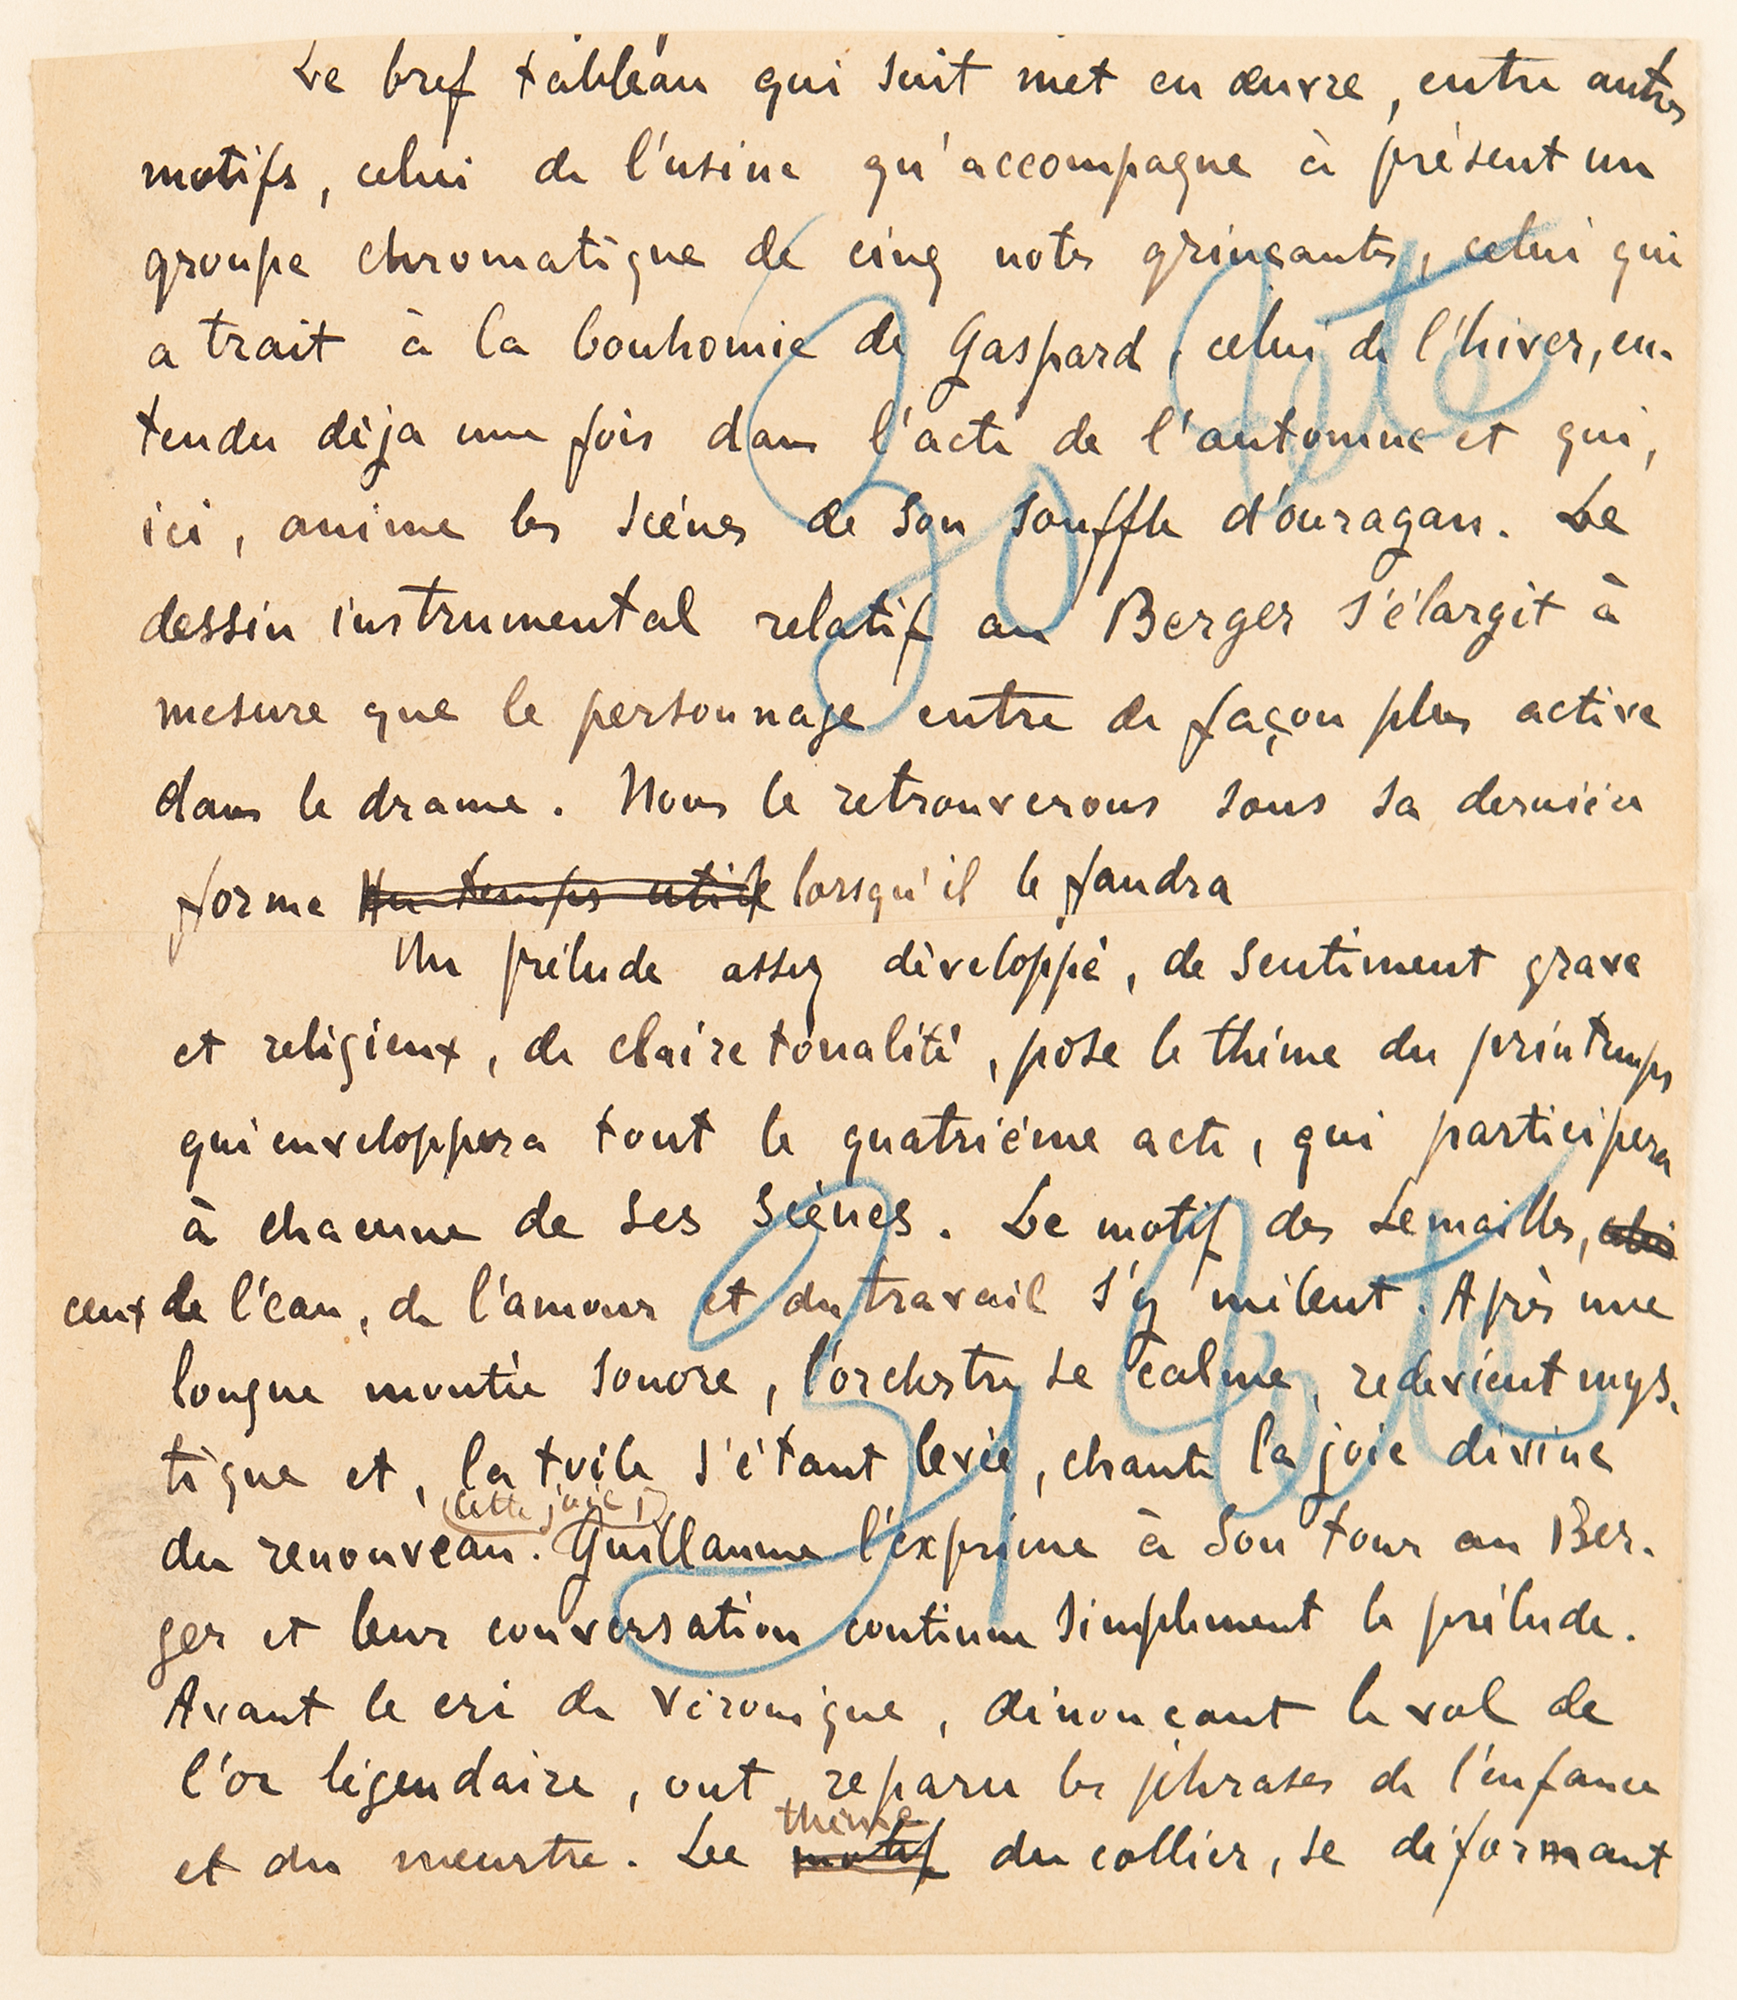 Le bref tableau qui suit met en œuvre, entre autres
motifs, celui de l'usine qu'accompagne à présent un
groupe chromatique de cinq notes grinçantes, celui qui
a trait à la bonhomie de Gaspard, celui de l'hiver, en-
tendu déja une fois dans l'acte de l'automne et qui,
ici, anime les scènes de son souffle d'ouragan. Le
dessin instrumental relatif au Berger s'élargit à
mesure que le personnage entre de façon plus active
dans le drame. Nous le retrouverons sous sa dernière
forme en temps utile lorsqu'il le faudra
Un prélude assez développé, de sentiment grave
et religieux, de claire tonalité, pose le thème du printemps
qui enveloppera tout le quatrième acte, qui participera
à chacune de ses scènes. Le motif des Lemailles, celui
ceux de l'eau, de l'amour et du travail s'y mêlent. Après une
longue montée sonore, l'orchestre se calme, redevient mys-
tique et, la toile s'étant levée, chante la joie divine
(cette joie,)
du renouveau. Guillaume l'exprime à son tour au Ber-
ger et leur conversation continue simplement le prélude.
Avant le cri de Véronique, dénonçant le vol de
l'or légendaire, ont reparu les phrases de l'enfance
thème
et du meurtre. Le motif du collier, se déformant
30
31